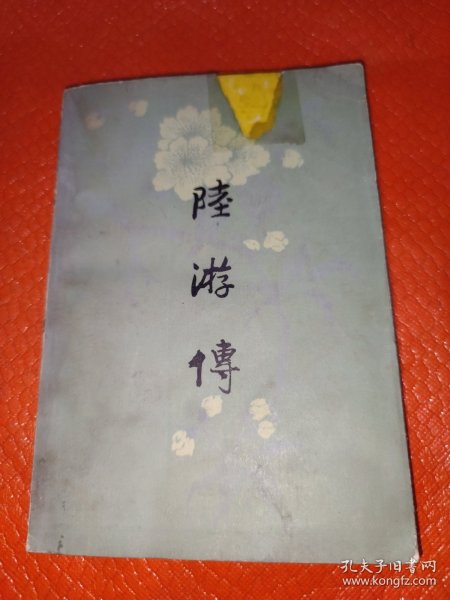 陸游傳
孔夫子旧书网
www.kongfz.com